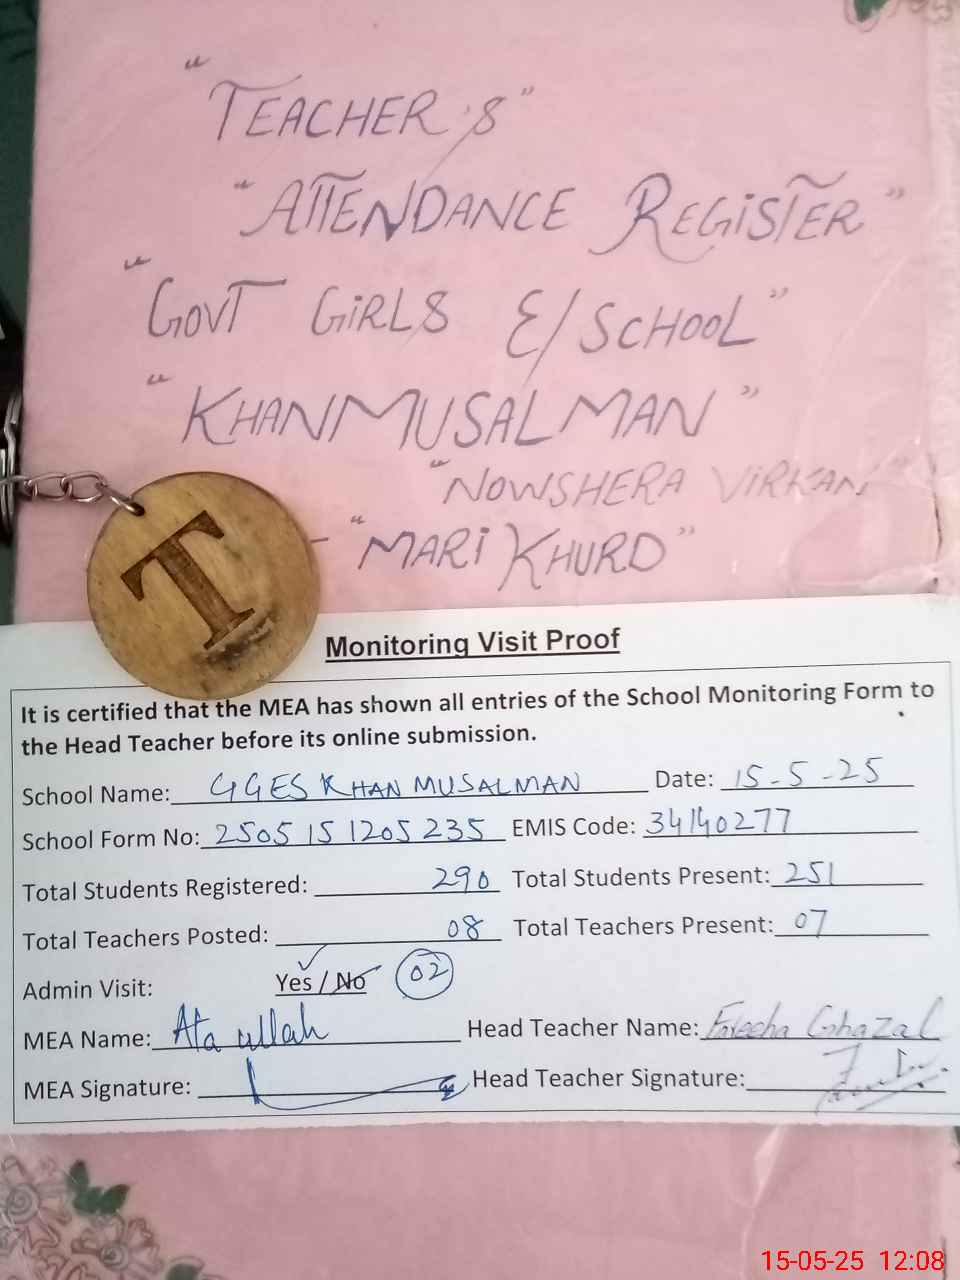 "TEACHER'S"
"ATTENDANCE REGISTER"
"GOVT GiRLS E/SCHOOL"
"KHANMUSALMAN"
"NOWSHERA ViRKAN"
- "MARi KHURD"
T
Monitoring Visit Proof
It is certified that the MEA has shown all entries of the School Monitoring Form to
the Head Teacher before its online submission.
School Name: GGES KHAN MUSALMAN Date: 15-5-25
School Form No: 2505151205235 EMIS Code: 34140277
Total Students Registered: 290 Total Students Present: 251
Total Teachers Posted: 08 Total Teachers Present: 07
Admin Visit: Yes / No 02
MEA Name: Ata ullah Head Teacher Name: Ghazal
MEA Signature: Head Teacher Signature:
15-05-25 12:08